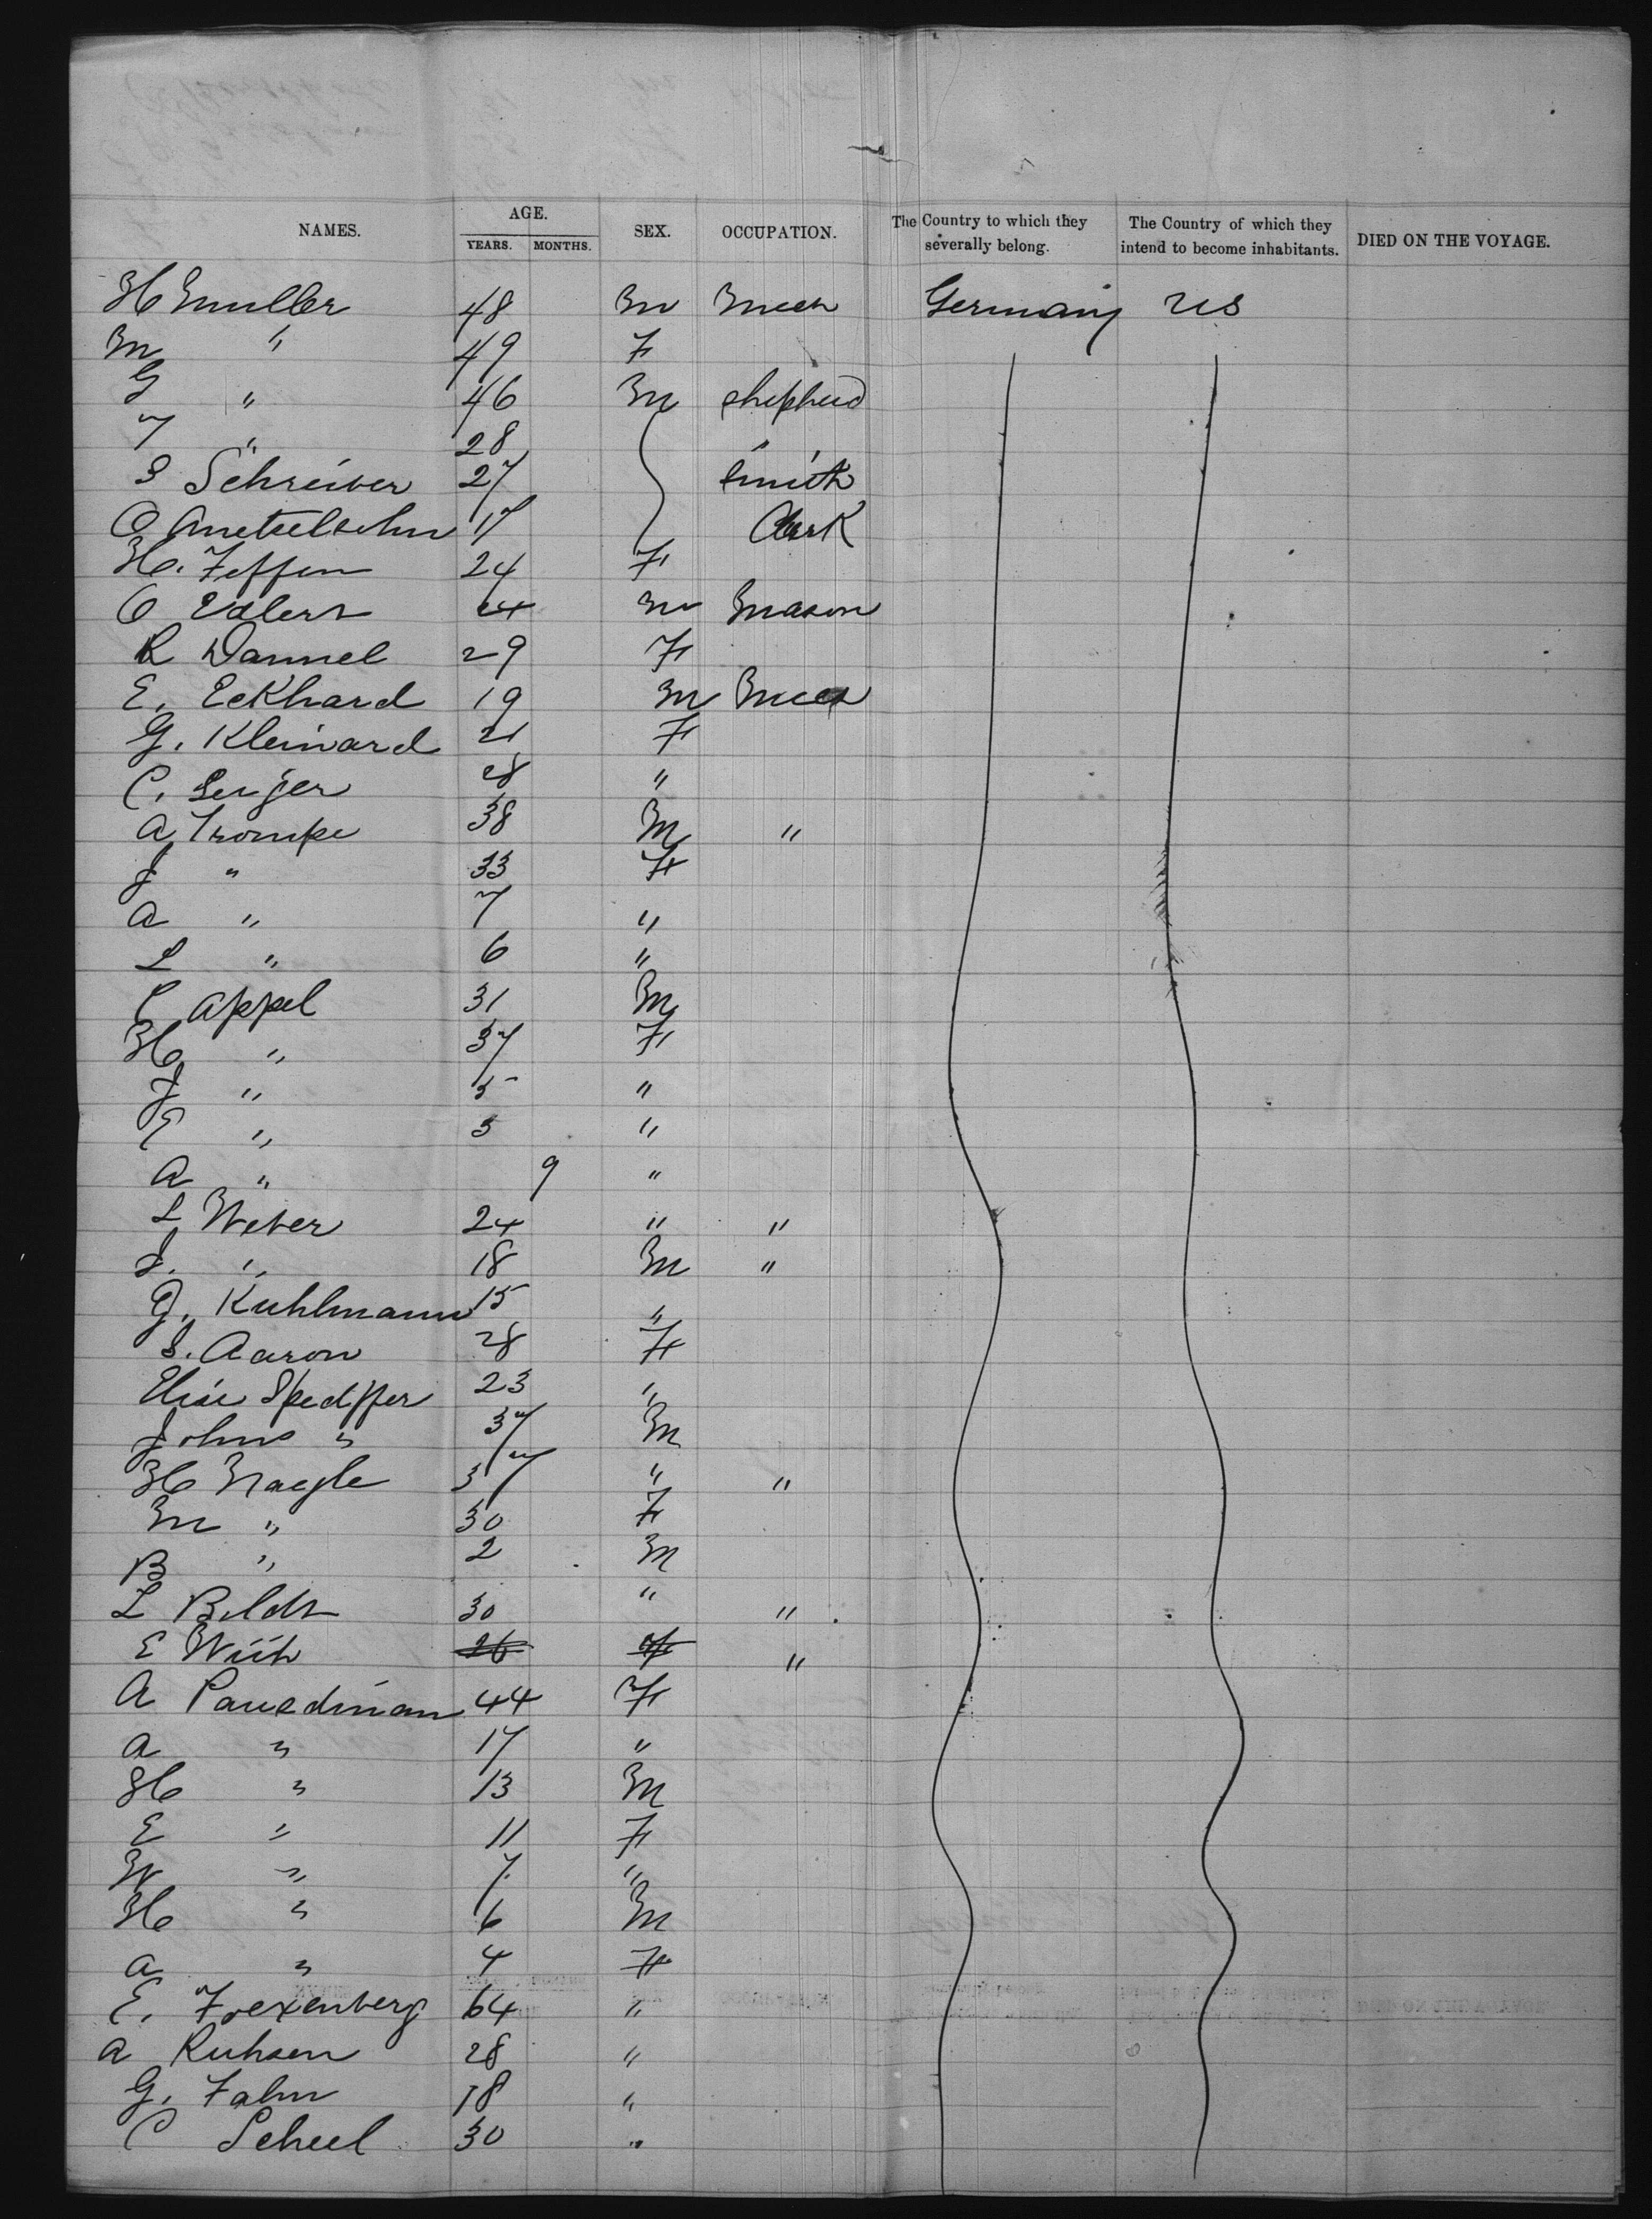 NAMES. AGE. YEARS. MONTHS. SEX. OCCUPATION. The Country to which they severally belong. The Country of which they intend to become inhabitants. DIED ON THE VOYAGE.
H Muller 48 M Mech Germany US
M " 49 F
G " 46 M shepherd
" 28
S Schreiber 27 Smith
O 17 Clerk
H. Feffen 24 F
O Edlers 24 M Mason
R Dammel 29 F
E. Eckhard 19 M Mech
G. Kleinard 21 F
C. Seijer 28 "
A Trompe 38 M "
J " 33 F
A " 7 "
L " 6 "
C Appel 31 M
H " 37 F
J " 5 "
E " 3 "
A " 9 "
L Weber 24 " "
J. " 18 M "
G. Kuhlmann 15 "
S. Aaron 28 F
Elise 23 "
John " 37 M
H Naegle 37 " "
M " 30 F
B " 2 M
L 30 " "
E 26 "
A 44 F
A " 17 "
H " 13 M
E " 11 F
W " 7 "
H " 6 M
A " 4 F
E. 64 "
A Ruhsen 28 "
G. Fahn 18 "
C Scheel 30 "